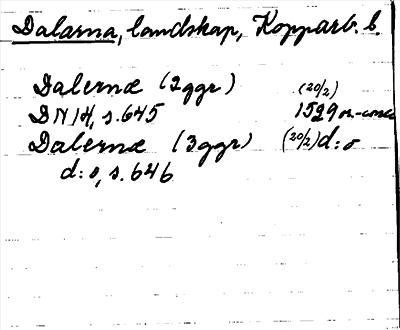 Dalarna, landskap, Kopparb. l.
Dalernæ (2ggr) (20/2)
DN 14, s. 645 1529
Dalernæ (3ggr) (20/2) d:o
d:o, s. 646